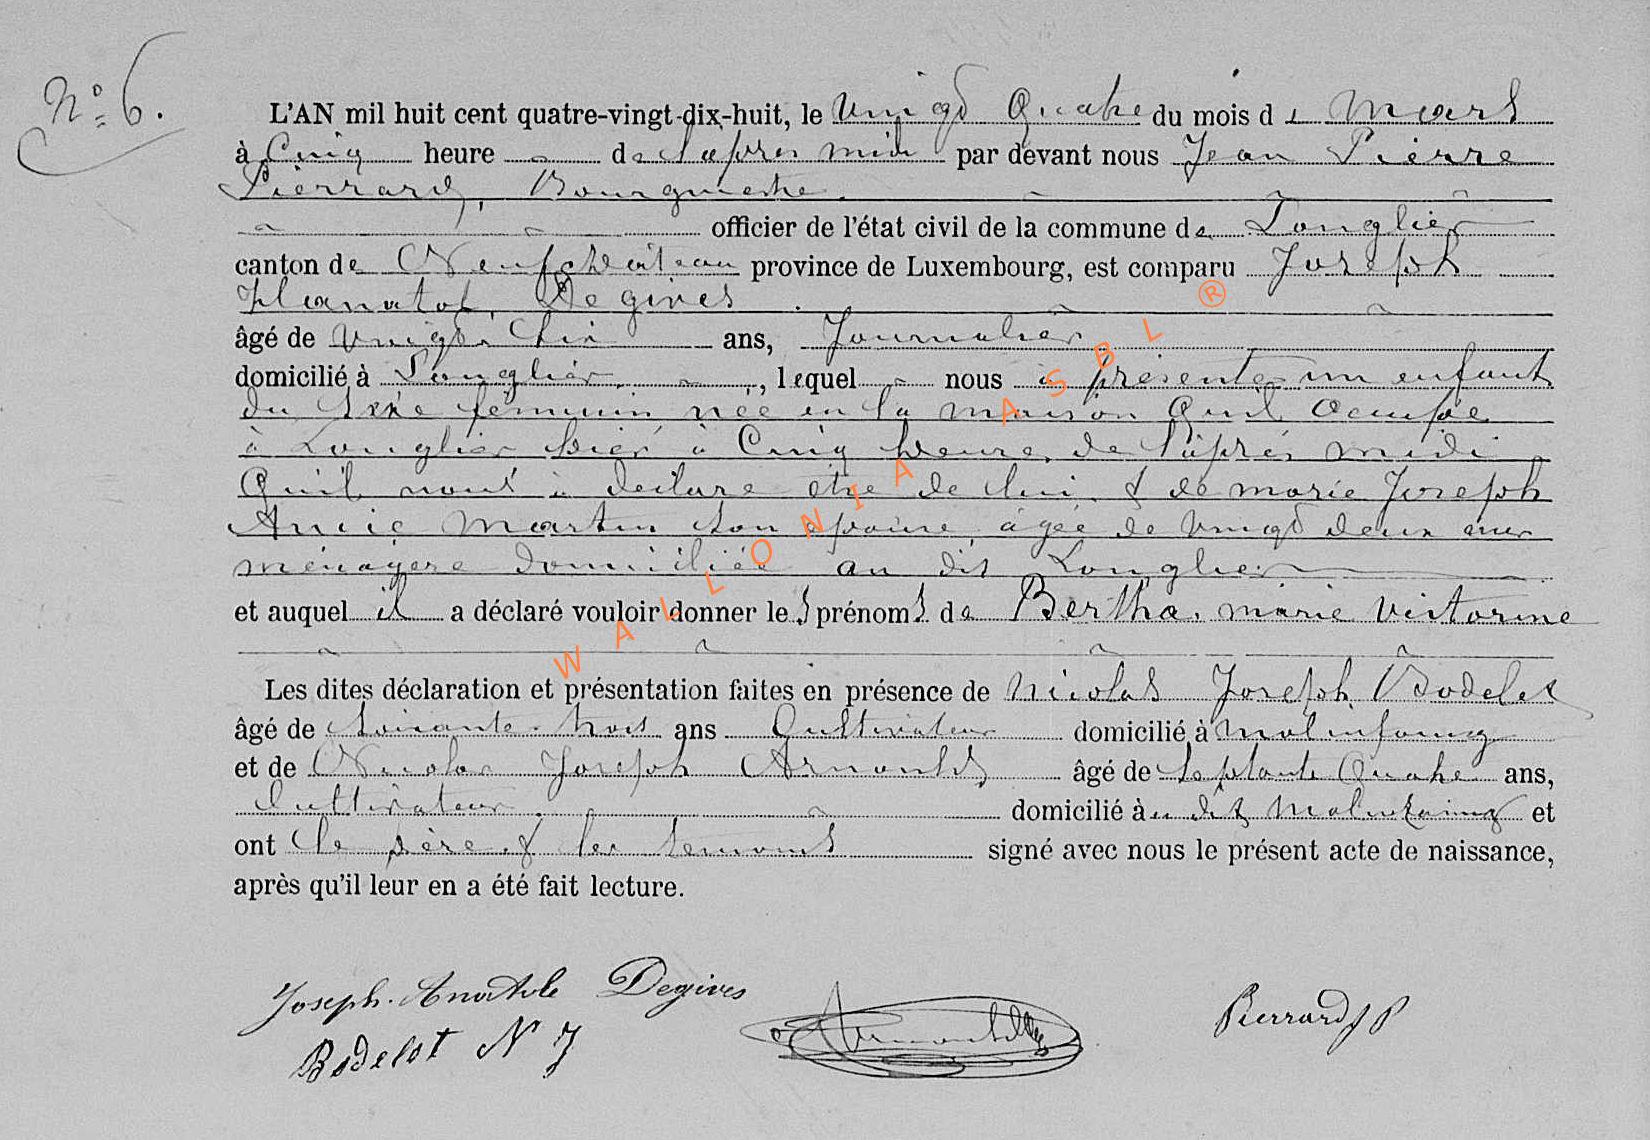 N° 6.
L'AN mil huit cent quatre-vingt-dix-huit, le vingt Quatre du mois de Mars
à Cinq heure de l'après midi par devant nous Jean Pierre
Pierrard, Bourgmestre
officier de l'état civil de la commune de Longlier
canton de Neufchâteau province de Luxembourg, est comparu Joseph
Degives
âgé de vingt ans, Journalier
domicilié à Longlier, lequel nous à présenté un enfant
du sexe féminin née en la maison Quil Occupe
à Longlier hier à Cinq heure de l'après midi
Quil nous à déclare etre de lui & de marie Joseph
Martin son epouse âgée de vingt deux ans
ménagère domiciliée au dit Longlier
et auquel il a déclaré vouloir donner les prénoms de Bertha, marie victorine
Les dites déclaration et présentation faites en présence de Nicolas Joseph Bodelet
âgé de soixante-trois ans Cultivateur domicilié à molinfaing
et de Nicolas Joseph Arnould âgé de septante Quatre ans,
Cultivateur domicilié au dit Molinfaing et
ont le père & les temoins signé avec nous le présent acte de naissance,
après qu'il leur en a été fait lecture.
Joseph. Anatole Degives
Bodelot N J
Pierrard J P
WALLONIA ASBL ®